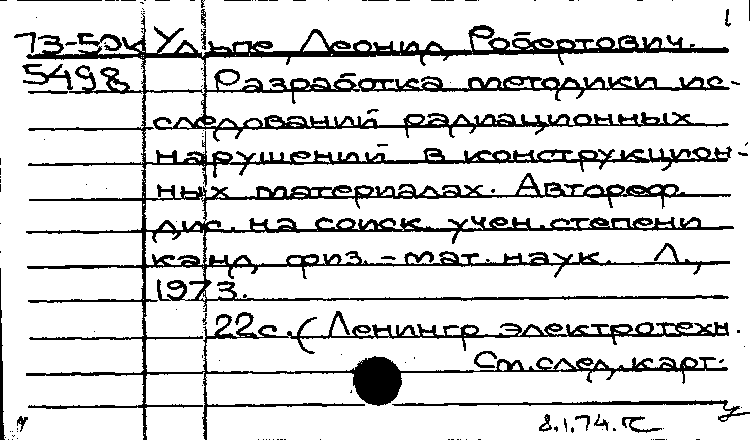 1
73-50к Ульпе, Леонид Робертович.
5498 Разработка методики ис-
следований радиационных
нарушений в конструкцион-
ных материалах. Автореф.
дис. на соиск. учен. степени
канд. физ.-мат. наук. Л.,
1973.
22с. (Ленингр. электротехн.
См. след. карт.
8.1.74.